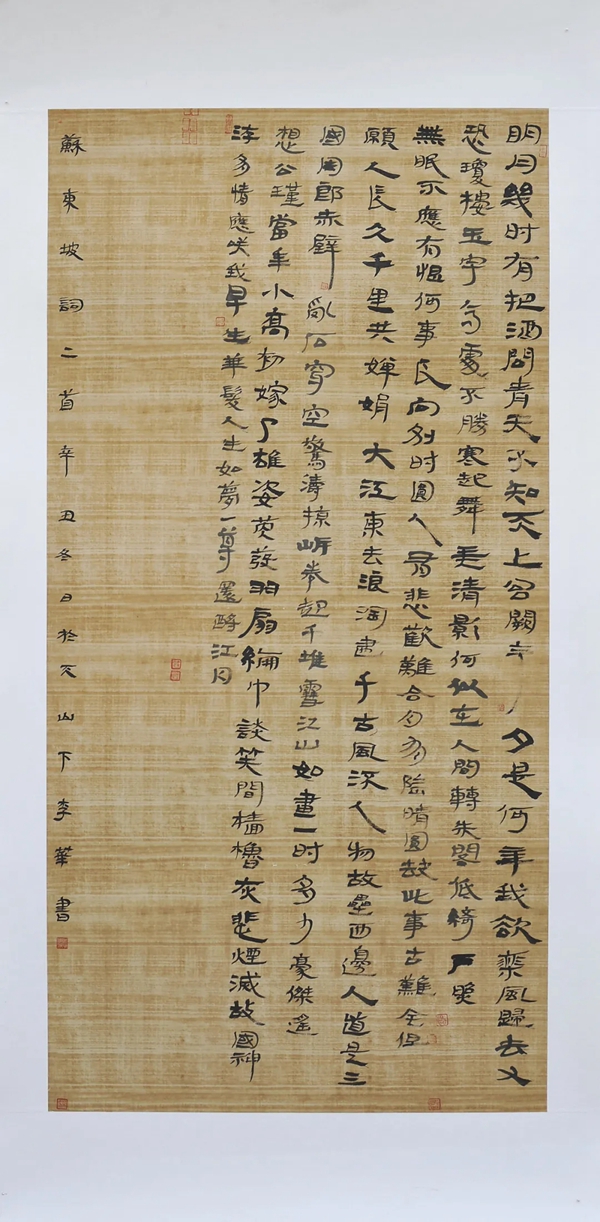 明月幾時有把酒問青天不知天上宮闕夕是何年我欲乘風歸去又
恐瓊樓玉宇高處不勝寒起舞弄清影何似在人間轉朱閣低綺戶照
無眠不應有恨何事長向別時圓人有悲歡離合月有陰晴圓缺此事古難全但
願人長久千里共嬋娟大江東去浪淘盡千古風流人物故壘西邊人道是三
國周郎赤壁亂石穿空驚濤掠岸卷起千堆雪江山如畫一時多少豪傑遙
想公瑾當年小喬初嫁了雄姿英發羽扇綸巾談笑間檣櫓灰飛煙滅故國神
游多情應笑我早生華髮人生如夢一尊還酹江月
蘇東坡詞二首辛丑冬日於天山下李華書